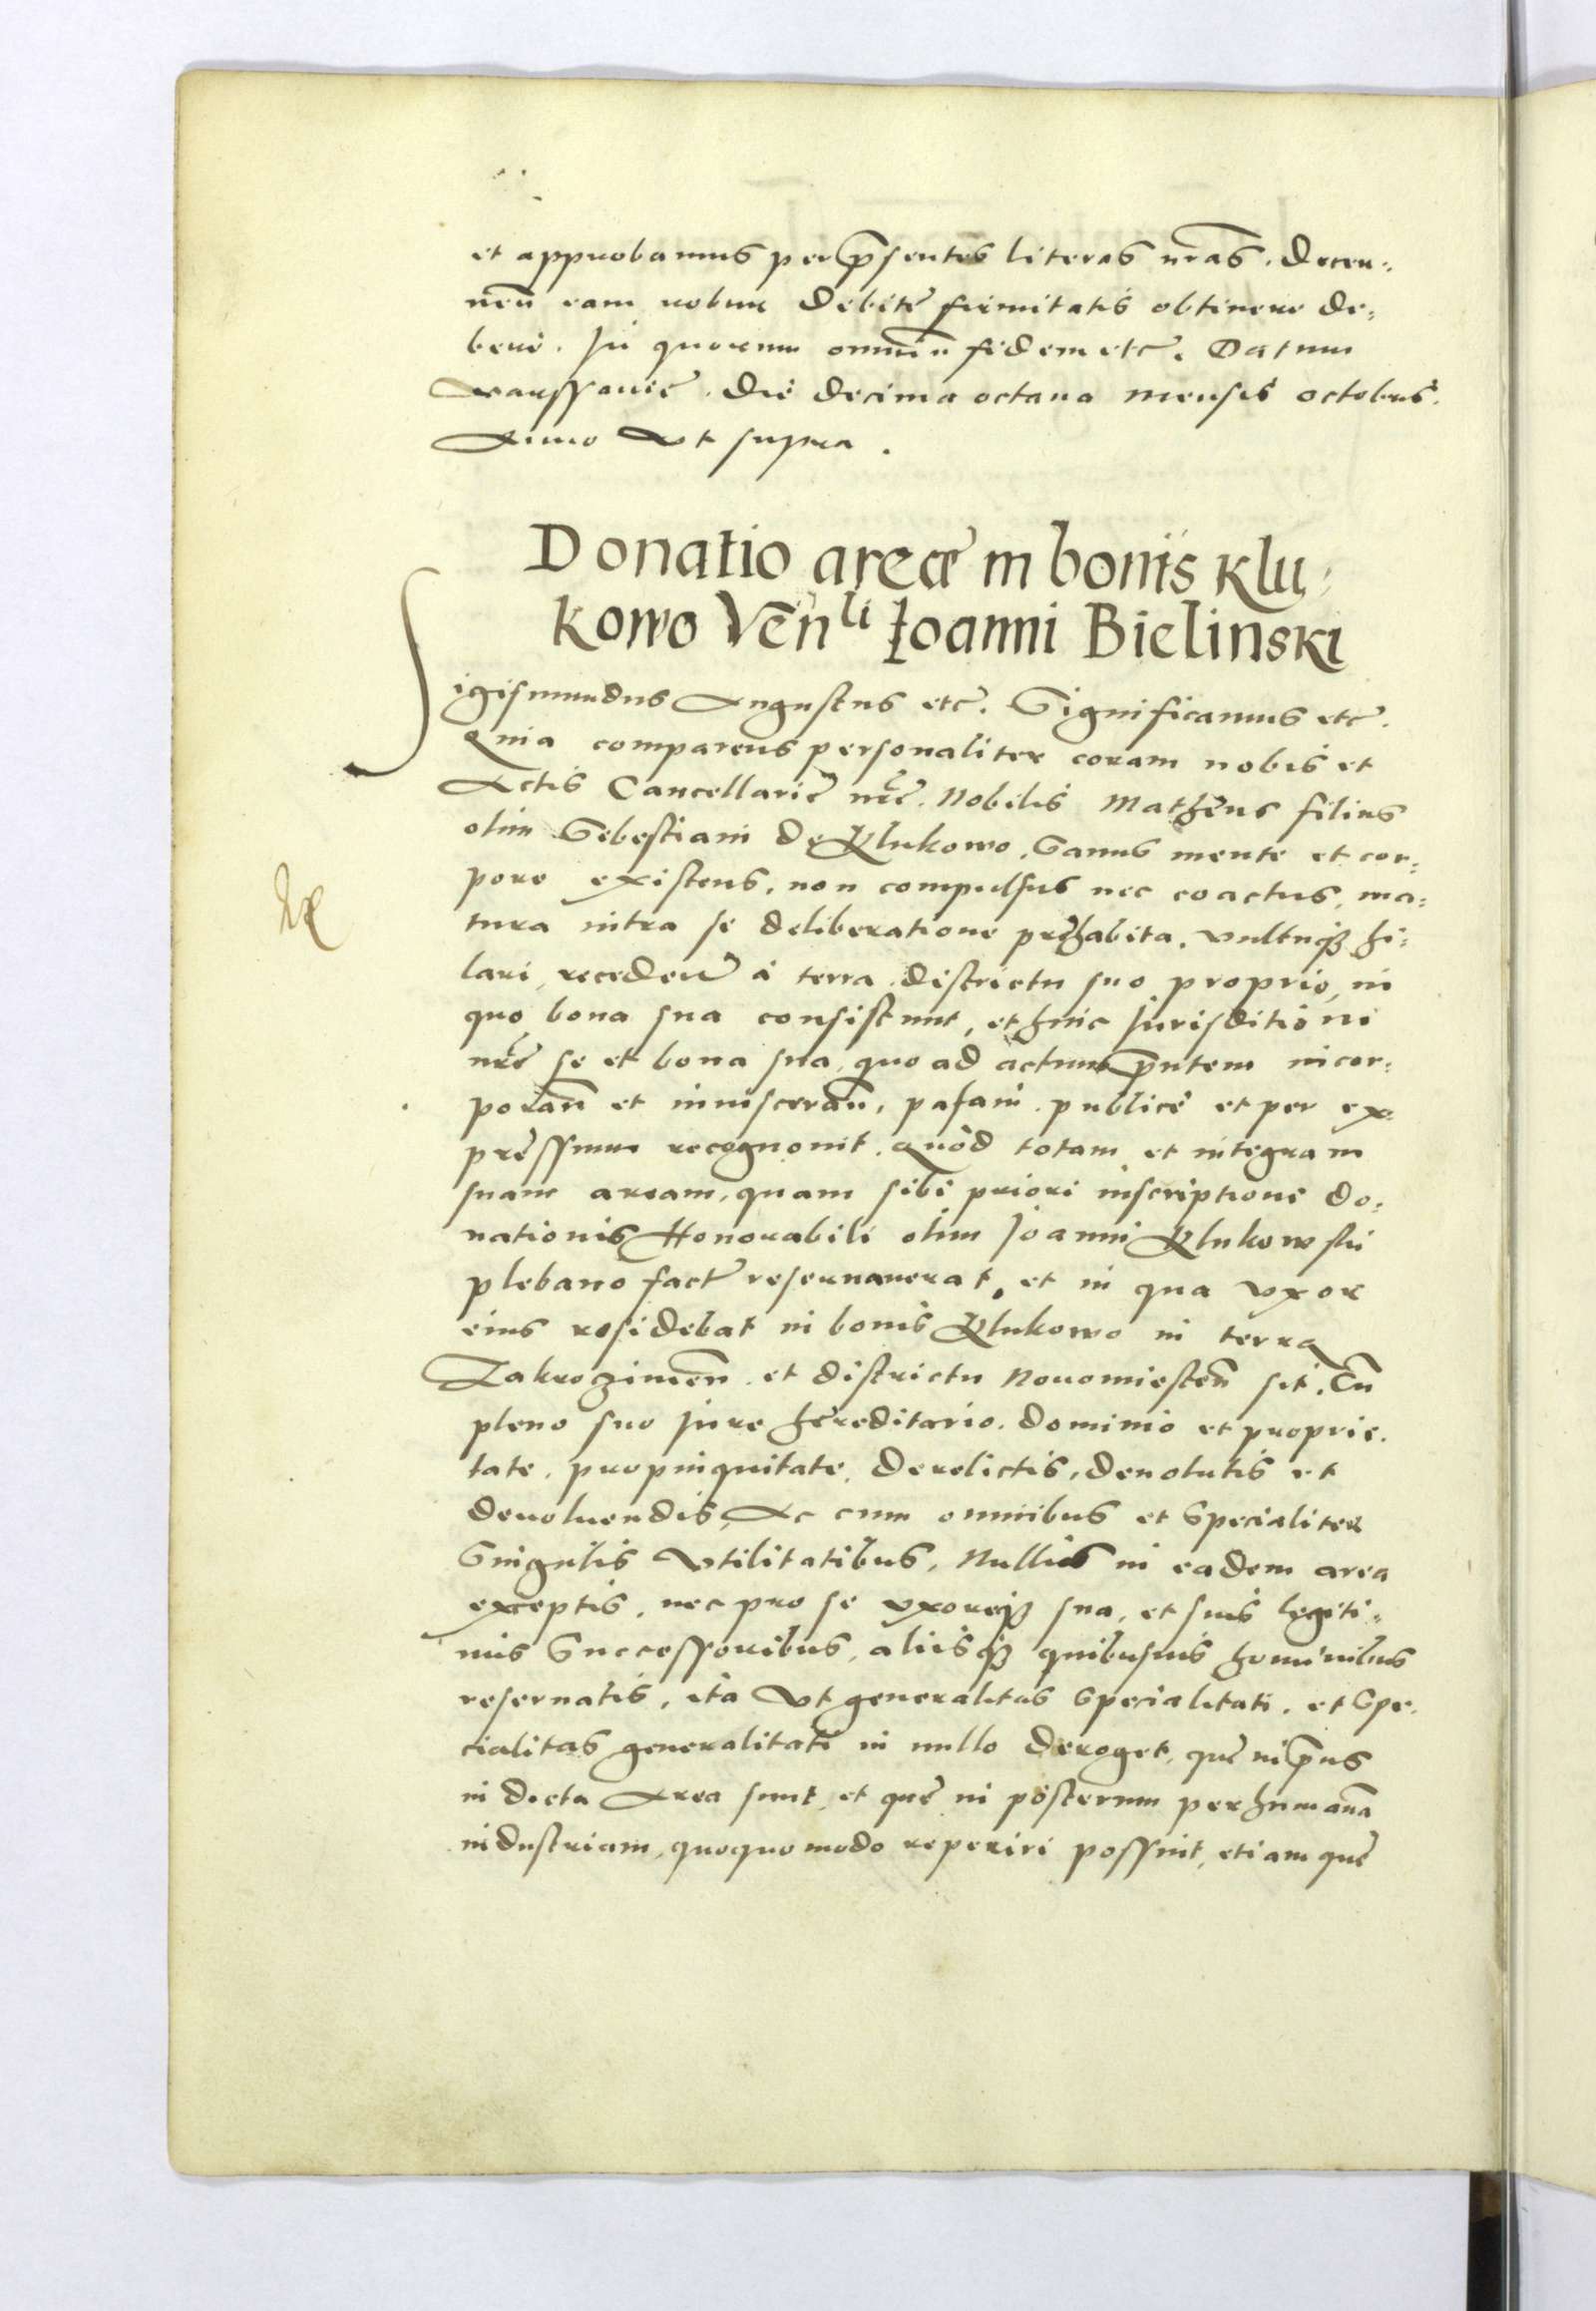 et approbamus per p̃sentes literas nr̃as. Decer-
neñ eam robur debitę firmitatis obtinere de-
bere. In quorum omniũ fidem etc. Datum
Warssouię. Die decima octaua mensis octobris.
Anno Vt supra.
Donatio areæ in bonis Klu-
kowo Ven̄li Ioanni Bielinski
Sigismundus Augustus etc. Significamus etc.
Quia comparens personaliter coram nobis et
Actis Cancellarię nr̃ę. Nobilis Mathęus filius
olim Sebestiani de Klukowo. Sanus mente et cor-
pore existens, non compulsus nec coactus, ma-
tura intra se deliberatione pręhabita. vultuq3 hi-
lari, receden̄ à terra districtu suo proprio, in
quo bona sua consistunt, et huic Jurisditioni
nr̃ę se et bona sua, quo ad actum p̃ntem incor-
poran̄ et inuisceran̄, palam publicè et per ex-
pressum recognouit. Quòd totam et integram
suam aream, quam sibi priori inscriptione do-
nationis Honorabili olim Joanni Klukowski
plebano factę reseruauerat, et in qua vxor
eius residebat in bonis Klukowo in terra
Zakrozimen̄. et districtu Nouomiesten̄ sit. Cũ
pleno suo Jure hęreditario. dominio et proprie-
tate, propinquitate, derelictis, deuolutis et
deuoluendis, Ac cum omnibus et Specialiter
Singulis Vtilitatibus, Nullis in eadem area
exceptis, nec pro se vxoreq3 sua, et suis legiti-
mis Successoribus, aliisq3 quibusuis hominibus
reseruatis, ità Vt generalitas Specialitati, et Spe-
cialitas generalitati in nullo deroget, quę in p̃ns
in dicta Area sunt, et quę in posterum per humanã
industriam, quoquomodo reperiri possint, etiam quę